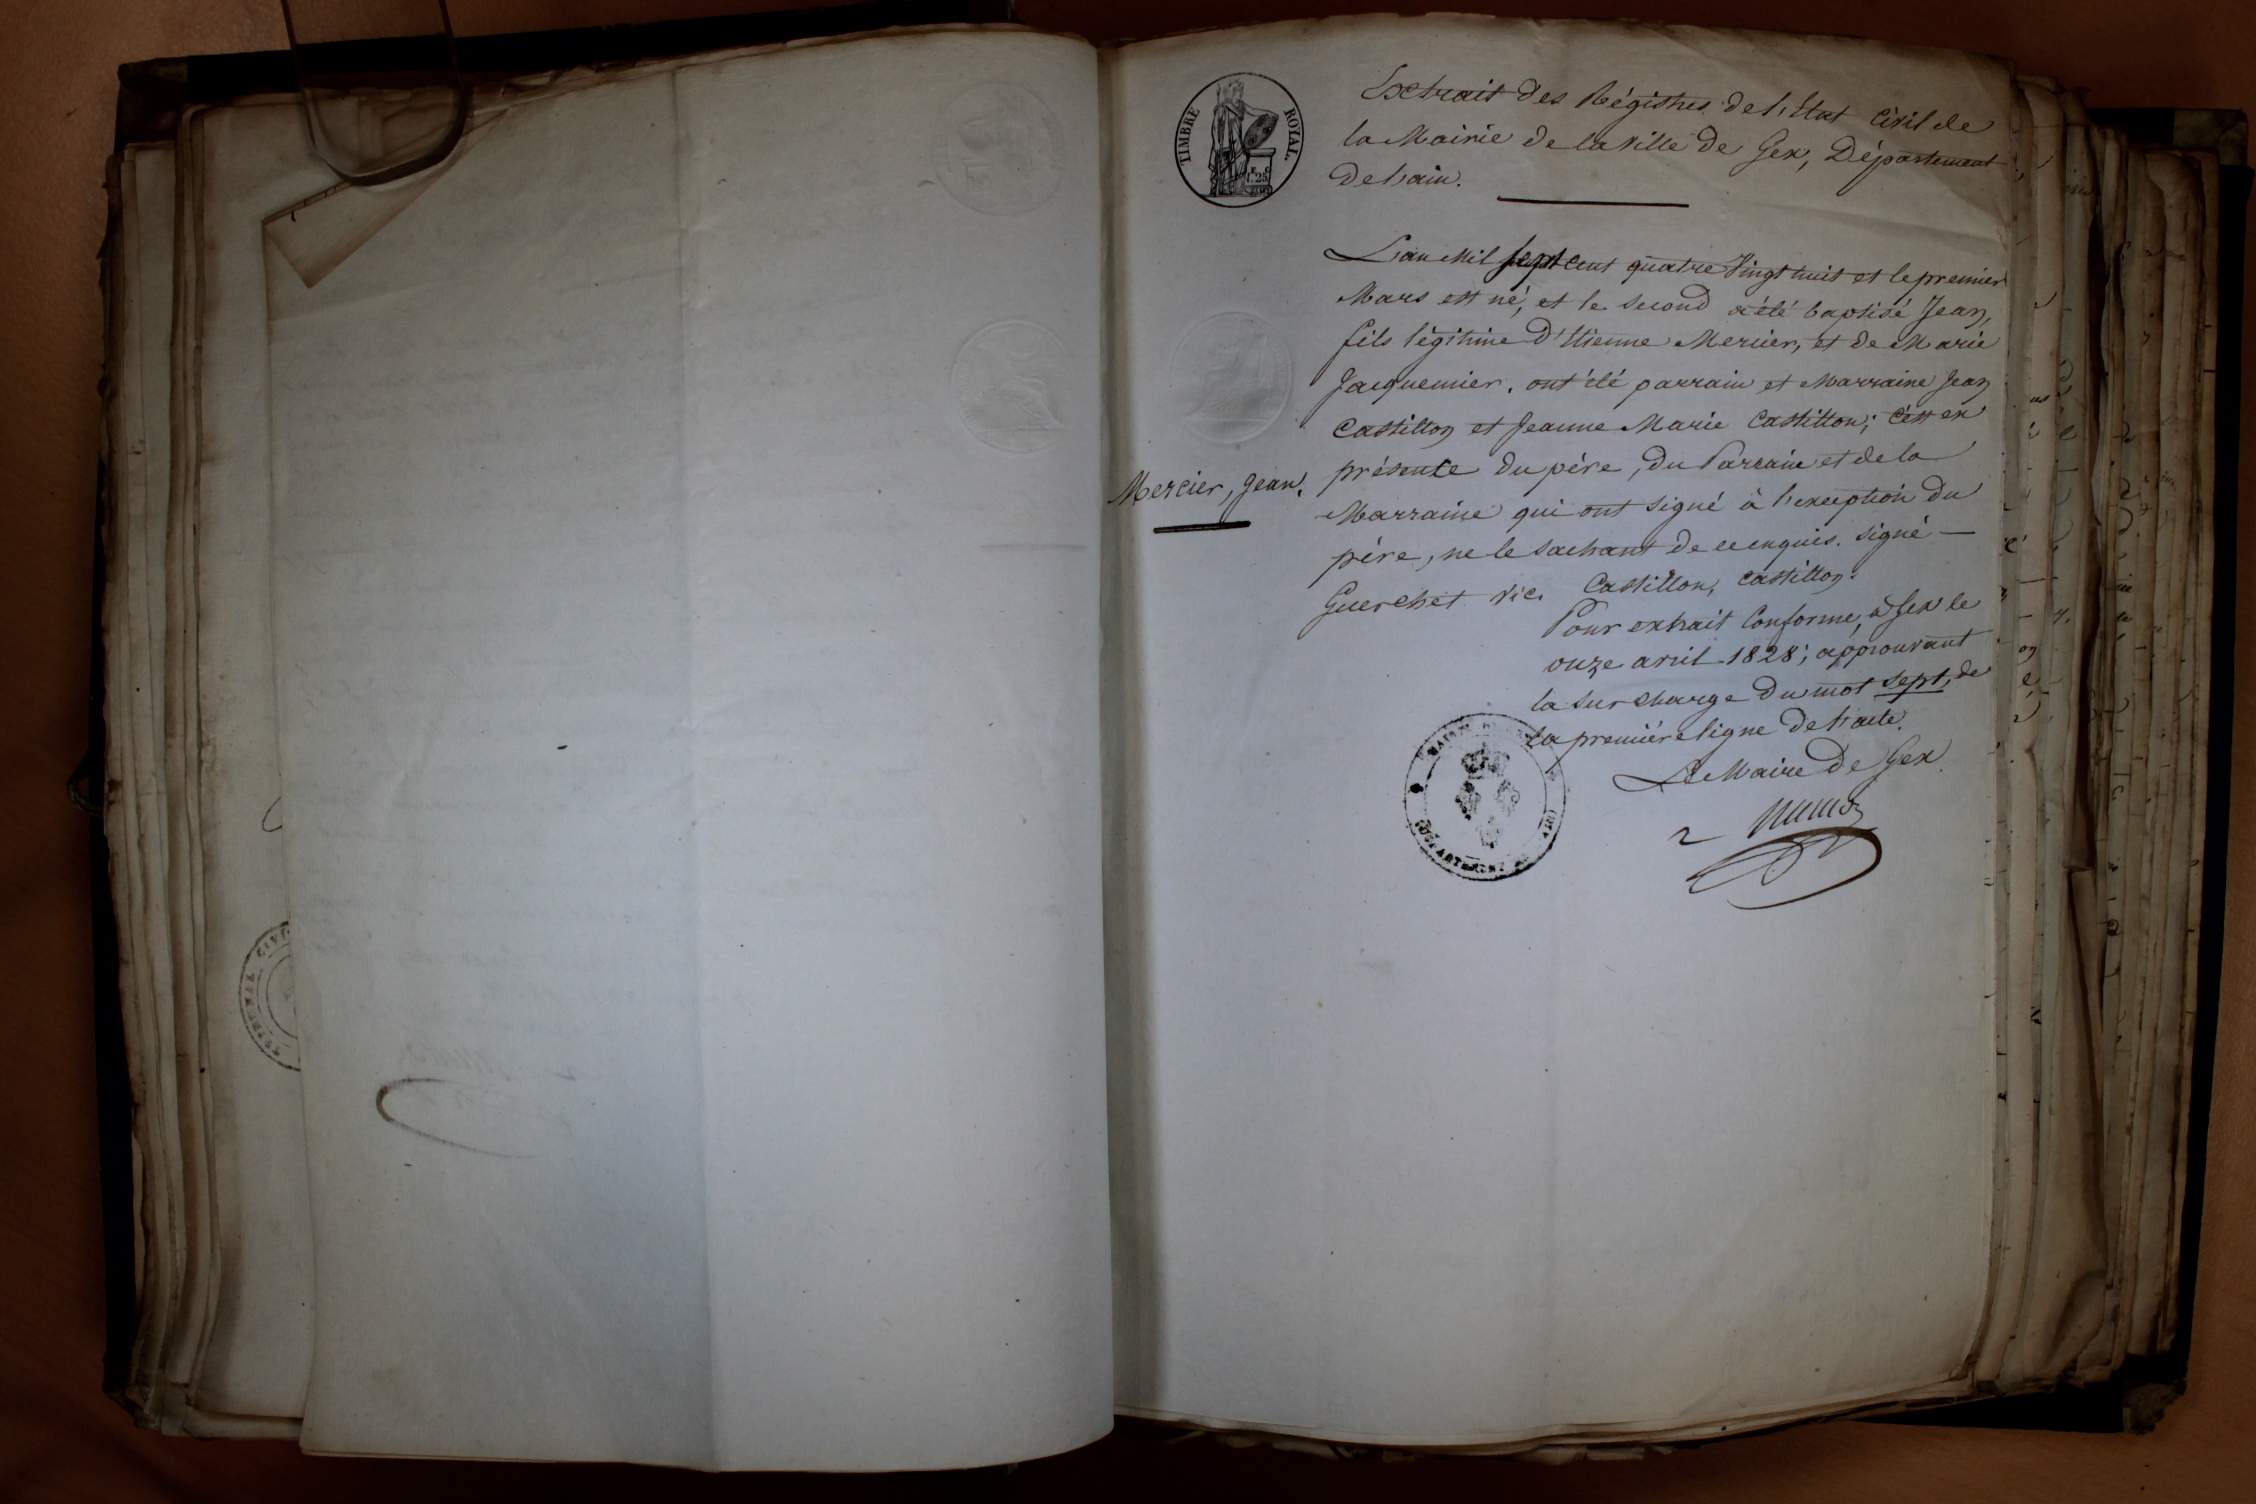 TIMBRE ROYAL.
1.F 25C
Extrait des Régistres de l'Etat Civil de
la Mairie de la Ville de Gex, Département
de l'ain.
L'an mil sept cent quatre Vingt huit et le premier
Mars est né, et le second a été baptisé Jean,
fils légitime d'Etienne Mercier, et de Marie
Jacquemier. ont été parrain et Marraine Jean
Castillon et Jeanne Marie Castillon; c'est en
présence du père, du Parrain et de la
Mercier, Jean.
Marraine qui ont signé à l'exception du
père, ne le sachant de ce enquis. signé —
Guerchet vic. Castillon, Castillon.
Pour extrait Conforme, à Gex le
onze avril 1828; approuvant
la surcharge du mot sept, de
la première ligne de l'acte.
Le Maire de Gex
MAIRIE
DÉPARTEMENT DE L'AIN
TRIBUNAL CIVIL